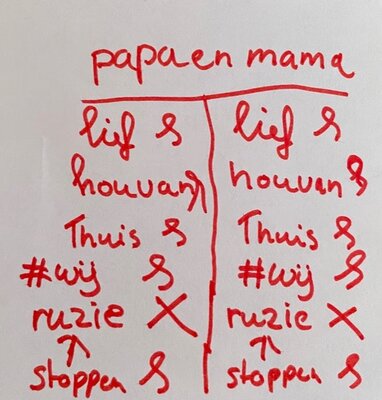 papa en mama
lief ₰ lief ₰
houvan ₰ houvan ₰
Thuis ₰ Thuis ₰
#wij ₰ #wij ₰
ruzie X ruzie X
↑ ↑
stoppen ₰ stoppen ₰